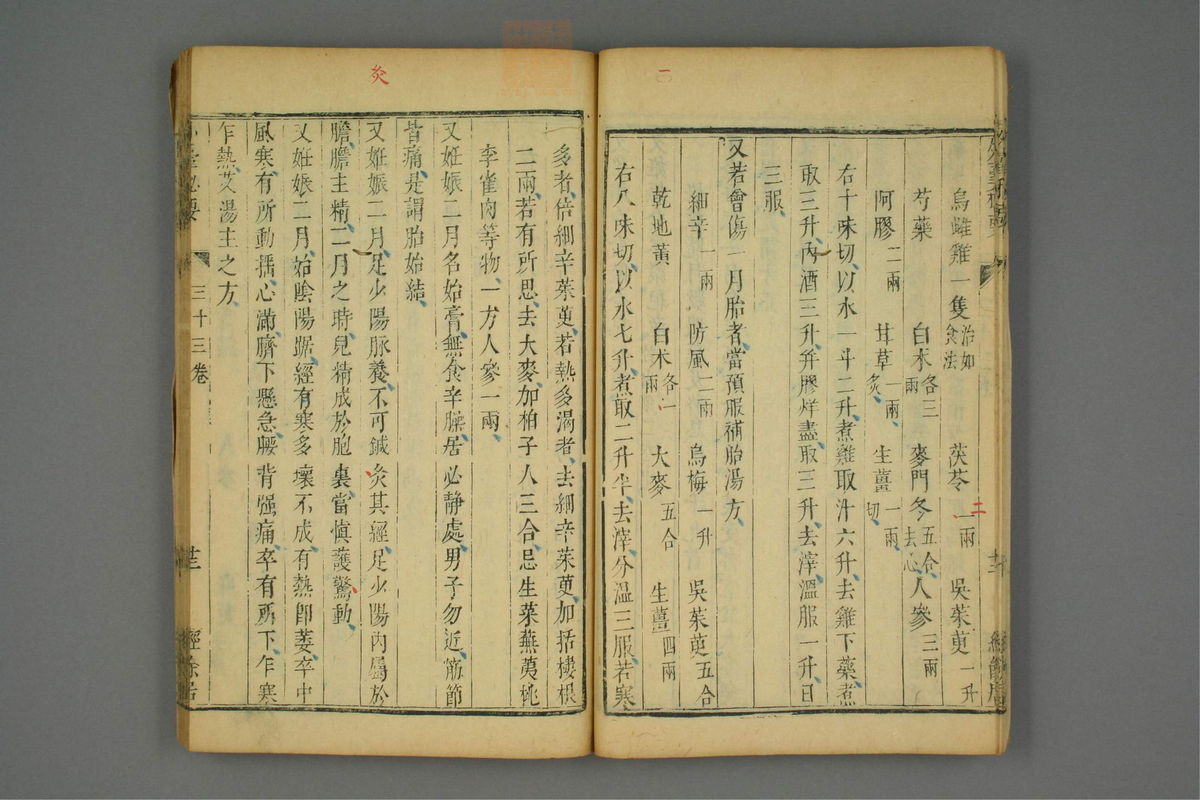 一
二
烏雌雞一隻治如食法 茯苓一兩 吳茱萸一升
芍藥 白朮各三兩 麥門冬五合去心 人參三兩
阿膠二兩 甘草一兩炙 生薑一兩切
右十味切以水一斗二升煮雞取汁六升去雞下藥煮
取三升內酒三升并膠烊盡取三升去滓溫服一升日
三服
又若曾傷一月胎者當預服補胎湯方
細辛一兩 防風二兩 烏梅一升 吳茱萸五合
乾地黃 白朮各一兩 大麥五合 生薑四兩
右八味切以水七升煮取二升半去滓分溫三服若寒
灸
多者倍細辛茱萸若熱多渴者去細辛茱萸加括樓根
二兩若有所思去大麥加柏子人三合忌生菜蕪荑桃
李雀肉等物一方人參一兩
又妊娠二月名始膏無食辛臊居必靜處男子勿近筋節
皆痛是謂胎始結
又妊娠二月足少陽脈養不可鍼灸其經足少陽內屬於
膽膽主精二月之時兒精成於胞裏當慎護驚動
又妊娠二月始陰陽踞經有寒多壞不成有熱卽萎卒中
風寒有所動搖心滿臍下懸急腰背强痛卒有所下乍寒
乍熱艾湯主之方
臺秘要 三十三卷 經餘居